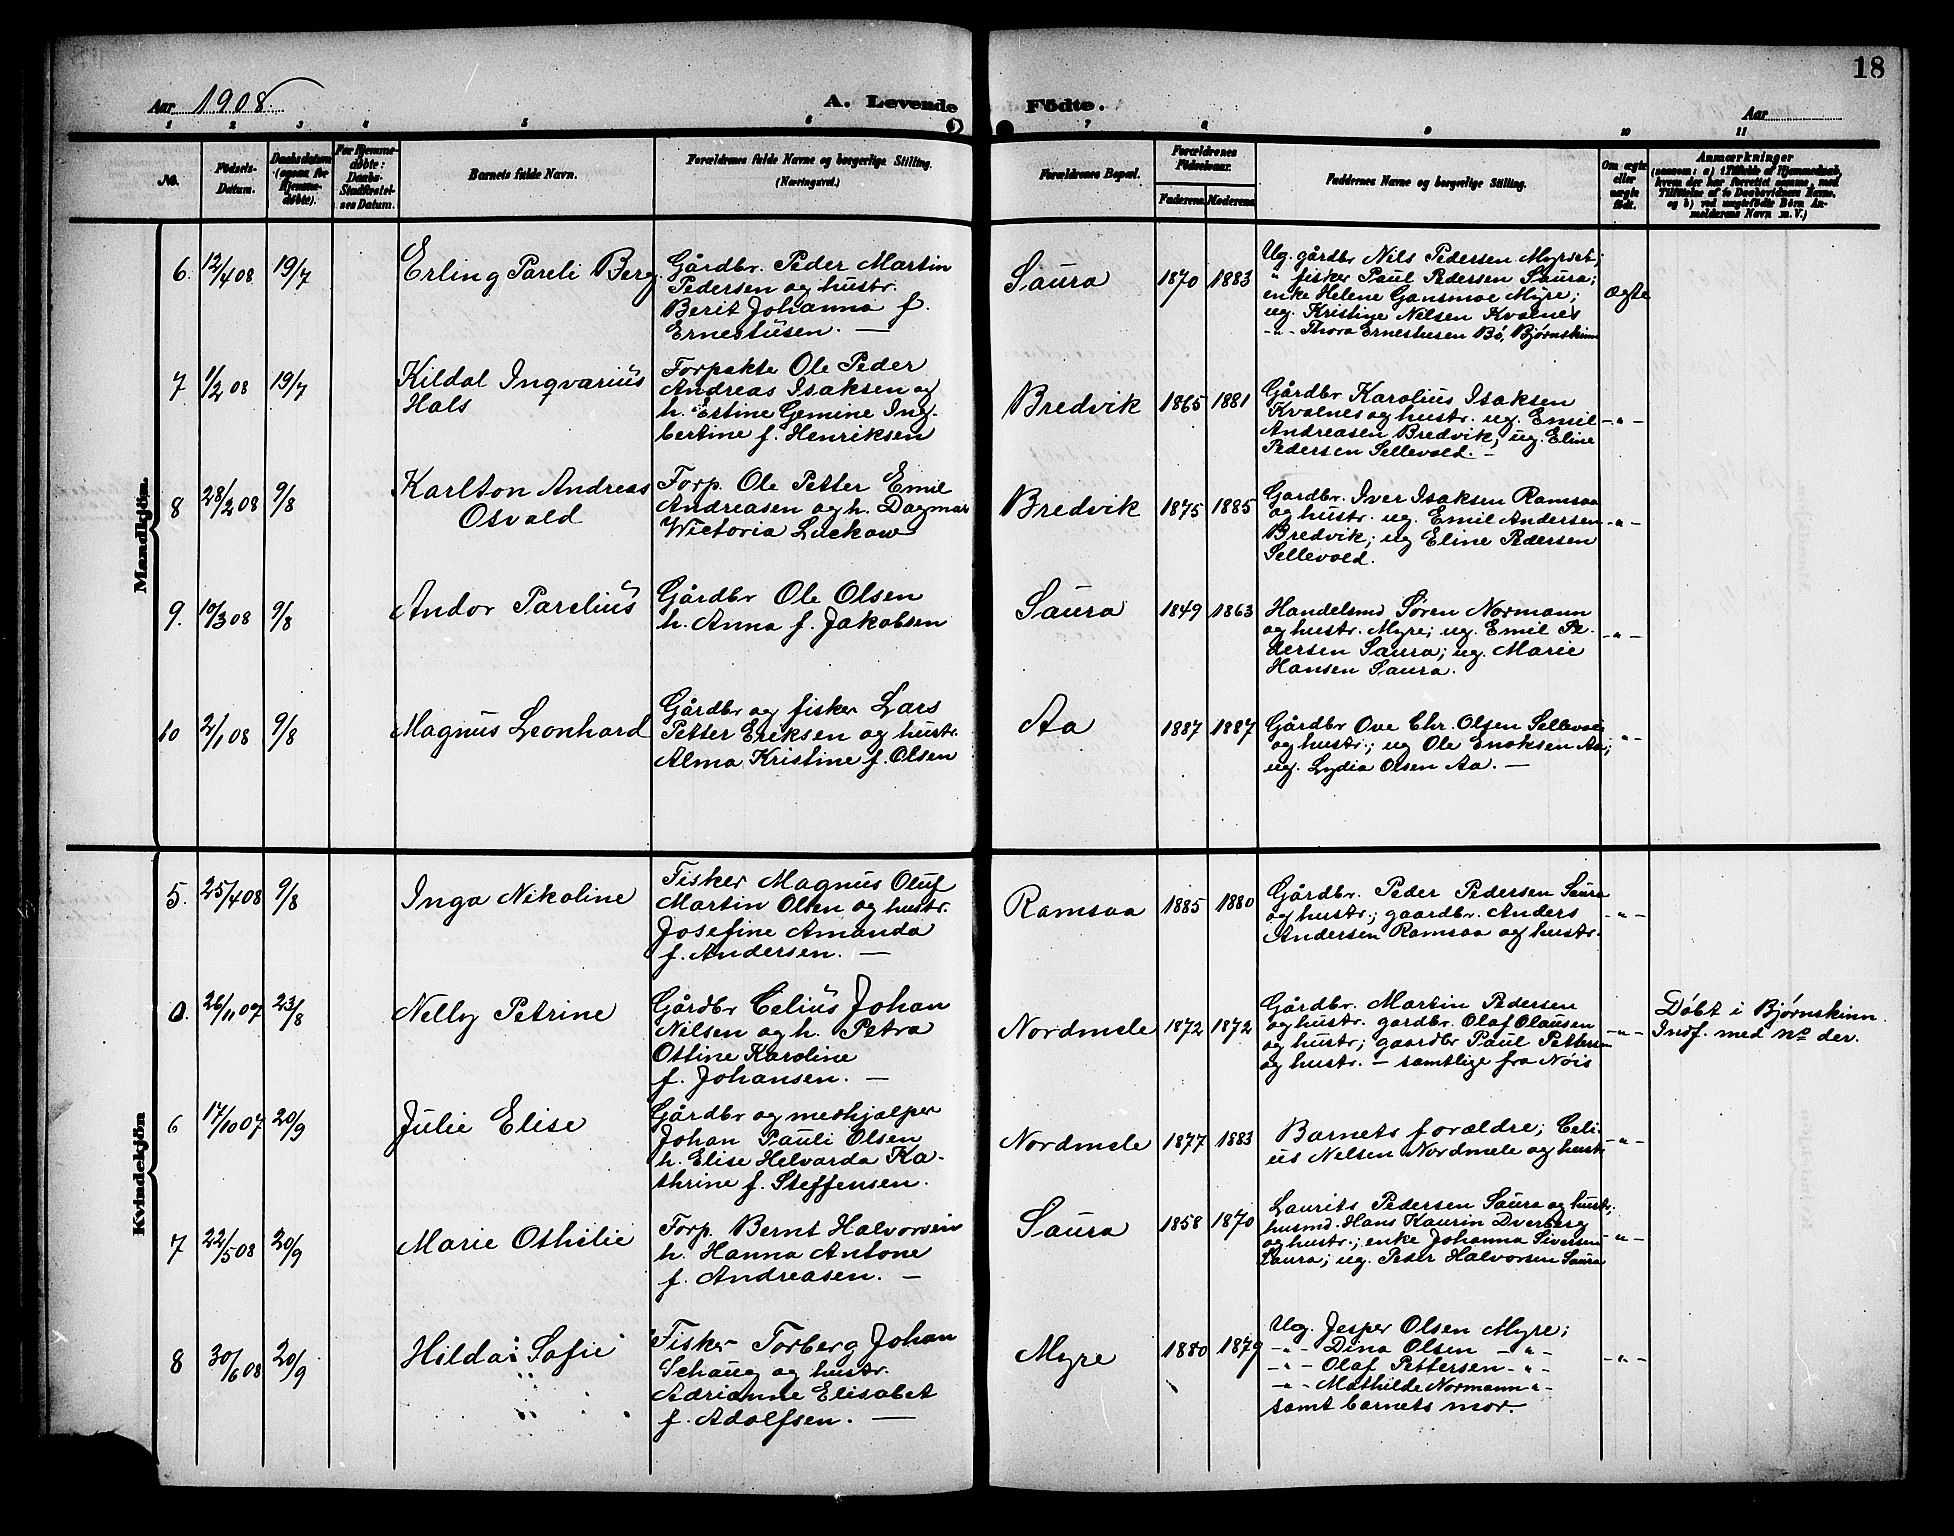 18
Aar 1908. A. Levende Födte. Aar
1 2 3 4 5 6 7 8 9 10 11
No.
Födsels-
Datum.
Daabsdatum
(ogsaa for
Hjemme-
døbte).
For Hjemme-
døbte:
Daabs-
Stadfæstel-
ses Datum.
Barnets fulde Navn.
Forældrenes fulde Navne og borgerlige Stilling.
(Næringsvei.)
Forældrenes Bopæl.
Forældrenes
Fødselsaar.
Faderens. Moderens.
Faddernes Navne og borgerlige Stilling.
Om ægte
eller
uægte
født.
Anmærkninger
Mandkjön.
6. 12/4 08 19/7
Erling Pareli Berg
Gårdbr. Peder Martin
Pedersen og hustr.
Berit Johanna f.
Ernestusen. —
Saura 1870 1883
Ug. gårdbr Nils Pedersen Myrset;
" fisker Paul Pedersen Saura;
enke Helene Gansmoe Myre;
ug. Kristine Nelsen Kvalnes
-"- Thora Ernestusen Bø, Bjørnskinn
Ægte
7 1/2 08 19/7
Kildal Ingvarius
Hals
Forpakte Ole Peder
Andreas Isaksen og
h. Estine Gemine Ing-
bertine f. Henriksen
Bredvik 1865 1881
Gårdbr Karolius Isaksen
Kvalnes og hustr. ug. Emil
Andreasen Bredvik; ug. Eline
Pedersen Sellevold. —
-"-
8 28/2 08 9/8
Karlton Andreas
Osvald
Forp. Ole Petter Emil
Andreasen og h. Dagmar
Wictoria Luckow
Bredvik 1875 1885
Gardbr. Iver Isaksen Ramsaa
og hustr. ug. Emil Andersen
Bredvik; ug Eline Pedersen
Sellevold.
-"-
9. 10/3 08 9/8
Andor Parelius
Gårdbr Ole Olsen
h. Anna f. Jakobsen
Saura 1849 1863
Handelsmd Søren Normann
og hustr. Myre; ug. Emil Pe-
dersen Saura; ug. Marie
Hansen Saura.
-"-
10 2/1 08 9/8
Magnus Leonhard
Gårdbr og fisker Lars
Petter Eriksen og hustr.
Alma Kristine f. Olsen
Aa 1887 1887
Gårdbr Ove Chr. Olsen Sellevold
og hustr.; ug Ole Enoksen Aa;
ug. Lydia Olsen Aa. —
-"-
Kvindekjön
5. 25/4 08 9/8
Inga Nikoline
Fisker Magnus Oluf
Martin Olsen og hustr.
Josefine Amanda
f. Andersen. —
Ramsaa 1885 1880
Gårdbr. Peder Pedersen Saura
og hustr.; gaardbr. Anders
Andersen Ramsaa og hustr.
-"-
0. 26/11 07 23/8
Nelly Petrine
Gårdbr Celius Johan
Nilsen og h. Petra
Ottine Karoline
f. Johansen. —
Nordmele 1872 1872
Gårdbr. Martin Pedersen
og hustr. gardbr. Olaf Olausen
og hustr; gaardbr Paul Pettersen
og hustr. — samtlige fra Nöis
-"-
Döbt i Bjørnskinn.
Indf. med No der.
6 17/10 07 20/9
Julie Elise
Gårdbr og meshjælper
Johan Pauli Olsen
h. Elise Helvarda Ka-
thrine f. Steffensen.
Nordmele 1877 1883
Barnets forældre; Celi-
us Nelsen Nordmele og hustr.
-"-
7 22/5 08 20/9
Marie Othilie
Forp. Bernt Halvorsen
h. Hanna Antone
f. Andreasen. —
Saura 1858 1870
Laurits Pedersen Saura og hustr.;
husmd. Hans Kaurin Dverberg
og hustr.; enke Johanna Siversen
Saura; ug. Peder Halvorsen Saura
-"-
8 30/6 08 20/9
Hilda Sofie
Fisker Torberg Johan
Schaug og hustr.
Adrianne Elisabet
f. Adolfsen. —
Myre 1880 1879
Ug. Jesper Olsen Myre;
-"- Dina Olsen -"-
-"- Olaf Pettersen -"-
-"- Mathilde Normann -"-
samt barnets mor.
-"-